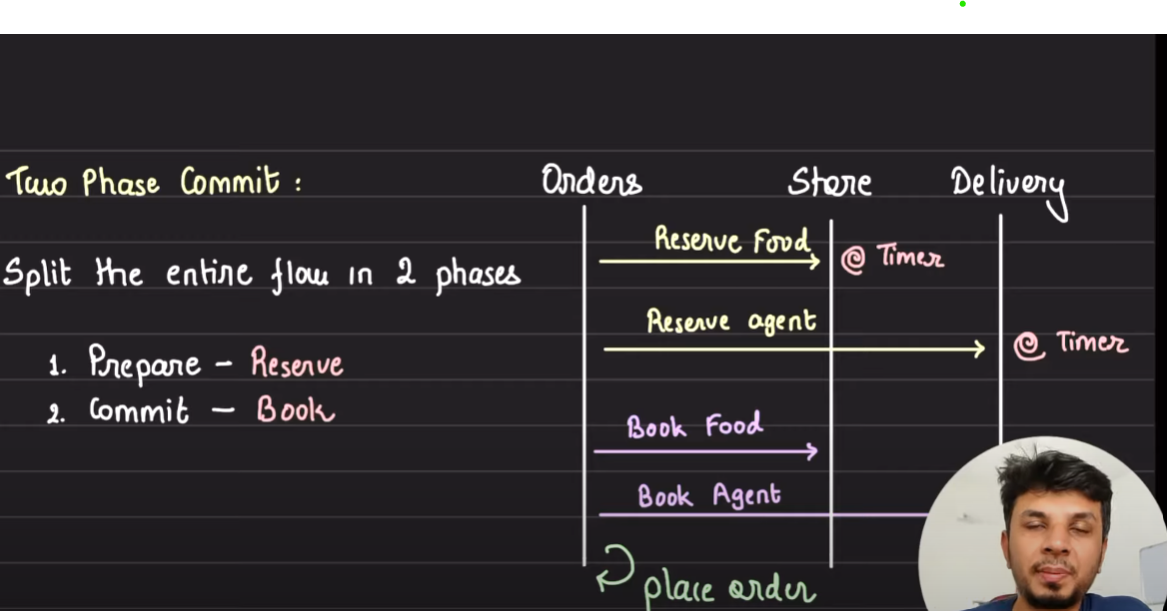 Two Phase Commit :
Split the entire flow in 2 phases
1. Prepare - Reserve
2. Commit - Book
Orders Store Delivery
Reserve Food
@ Timer
Reserve agent
@ Timer
Book Food
Book Agent
place order